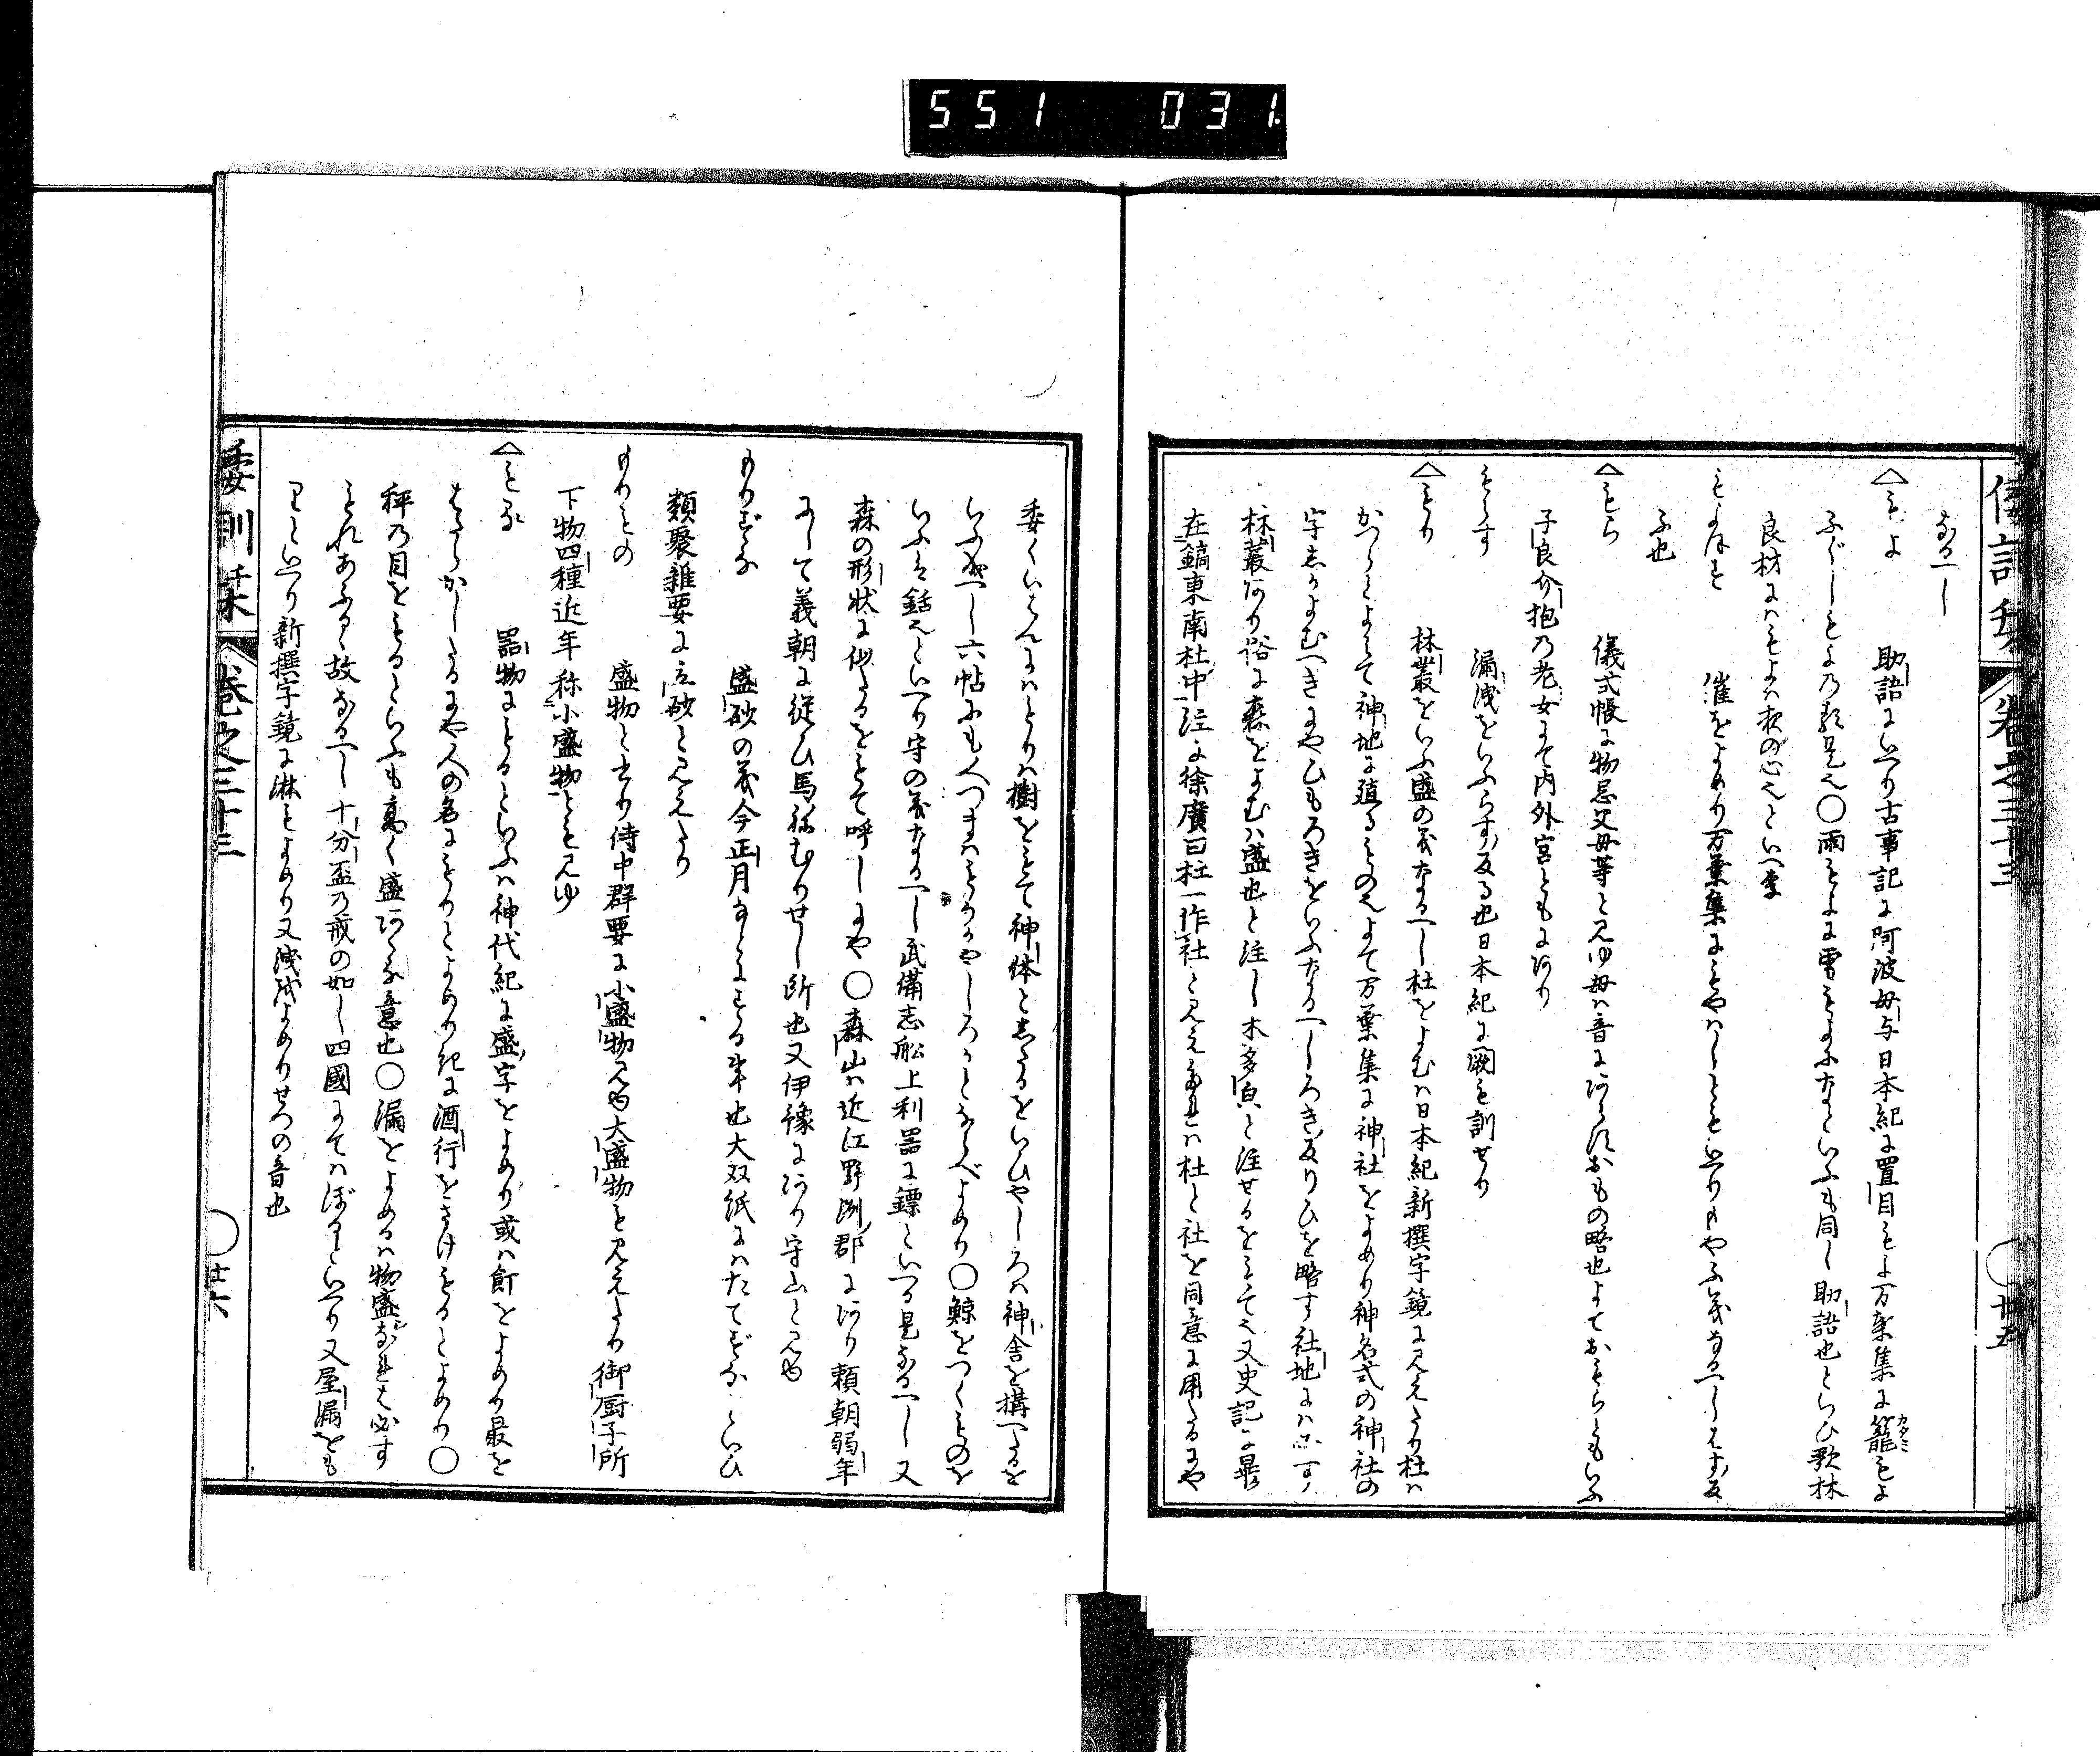 551 031.
倭訓栞 巻之三十三 ○廿五
なるへし
△もよ 助語にいへり古事記に阿波母与日本紀に置目もよ万葉集に籠もよ
カタミ
ふぐしもよの類是也○雨もよに雪もよになといふも同し助語也といひ歌林
良材にはもよは夜の心也といへり
もよほす 催をよめり万葉集にもやはしともいへりもやふ義なるへしはす反
ふ也
△もら 儀式帳に物忌父母等と見ゆ母は音にあらすおもの略也よておもらともいふ
子良介抱の老女にて内外宮ともにあり
もらす 漏洩をいふらす反る也日本紀に闕も訓せり
△もり 林叢をいふ盛の義なるへし杜をよむは日本紀新撰字鏡に見えたり杜は
かつらとよみて神地に殖るもの也よて万葉集に神社をよめり神名式の神社の
字しかよむへきにやひもろきをいふなるへしろき反りひを略す社地には必す
林叢あり俗に森をよむは盛也と注し木多皃と注せるをもて也又史記に畢
在鎬東南杜中注に徐廣曰杜一作社と見えたれは杜と社を同意に用たるにや
委くいはんにはもりは樹をもて神体としたるをいひやしろは神舎を構へたるを
いふへし六帖にも人つまはもりかやしろかとならべよめり○鯨をつくものを
いふは銛也といへり守の義なるへし武備志船上利器に鏢といへる是なるへし又
森の形状に似たるをもて呼しにや○森山は近江野洲郡にあり頼朝弱年
にして義朝に従ひ馬ねむりせし所也又伊豫にあり守山と見ゆ
もりずな 盛砂の義今正月なとにする事也大双紙にはたてずなといひ
類聚雑要に立砂と見えたり
もりもの 盛物と書り侍中群要に小盛物見ゆ大盛物と見えたり御厨子所
下物四種近年称小盛物とも見ゆ
△もる 器物にもるといふは神代紀に盛字をよめり或は飣をよめり最を
はたらかしたるにや人の名にもりとよめり紀に酒行をさけもるとよめり○
秤の目をもるといふも高く盛あくる意也○漏をよめるは物盛なれは必す
もれあふるゝ故なるへし十分盃の戒の如し四國にてはぼるといへり又屋漏をも
りといへり新撰字鏡に淋もよめり又洩泄よめりせつの音也
倭訓栞 巻之三十三 ○廿六